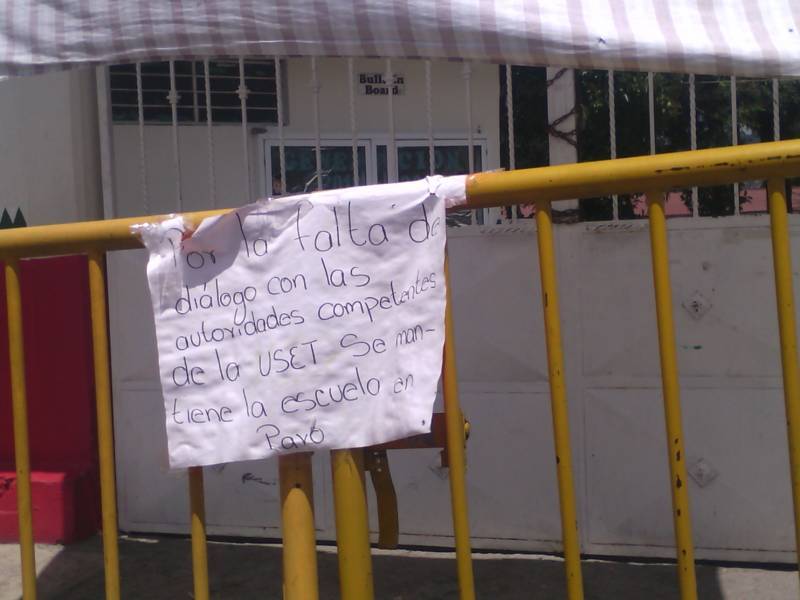 Bulletin
Board
Por la falta de
diálogo con las
autoridades competentes
de la USET Se man-
tiene la escuela en
Paró